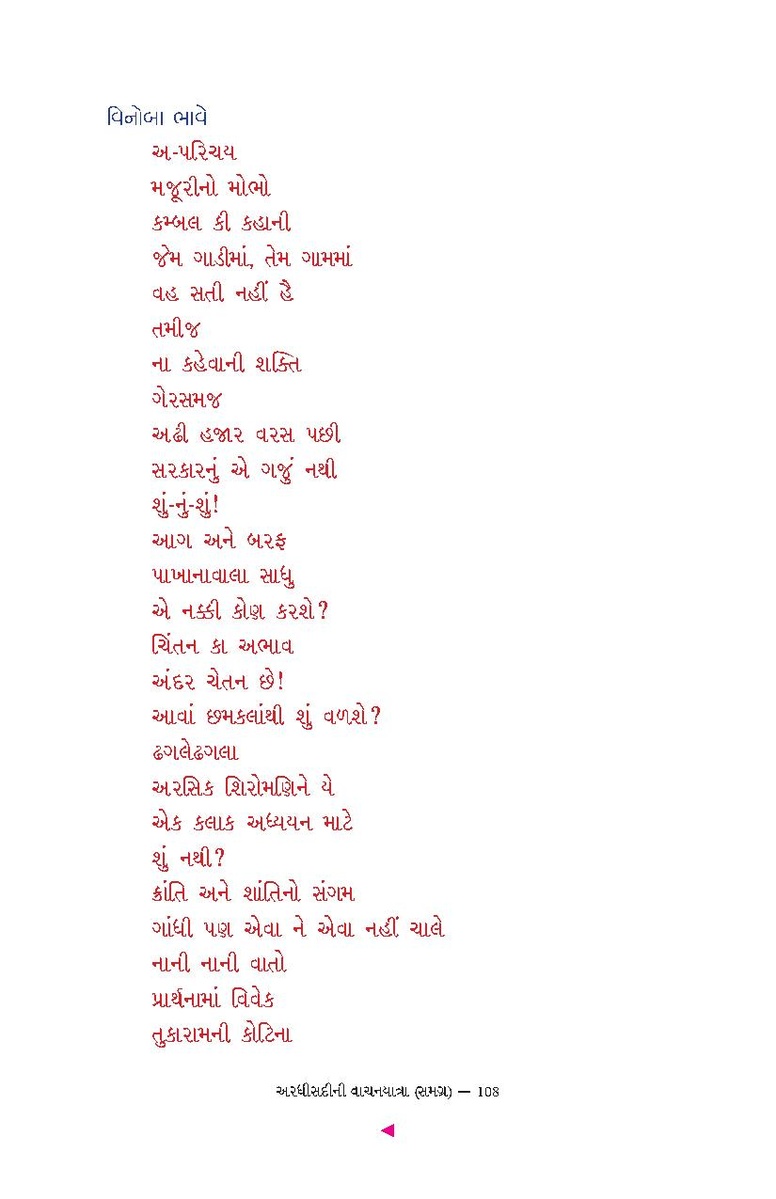 વિનોબા ભાવે
અ-પરિચય
મજૂરીનો મોભો
કમ્બલ કી કહાની
જેમ ગાડીમાં, તેમ ગામમાં
વહ સતી નહીં હૈ
તમીજ
ના કહેવાની શક્તિ
ગેરસમજ
અઢી હજાર વરસ પછી
સરકારનું એ ગજું નથી
શું-નું-શું!
આગ અને બરફ
પાખાનાવાલા સાધુ
એ નક્કી કોણ કરશે?
ચિંતન કા અભાવ
અંદર ચેતન છે!
આવાં છમકલાંથી શું વળશે?
ઢગલેઢગલા
અરસિક શિરોમણિને યે
એક કલાક અધ્યયન માટે
શું નથી?
ક્રાંતિ અને શાંતિનો સંગમ
ગાંધી પણ એવા ને એવા નહીં ચાલે
નાની નાની વાતો
પ્રાર્થનામાં વિવેક
તુકારામની કોટિના
અરધીસદીની વાચનયાત્રા (સમગ્ર) — 108